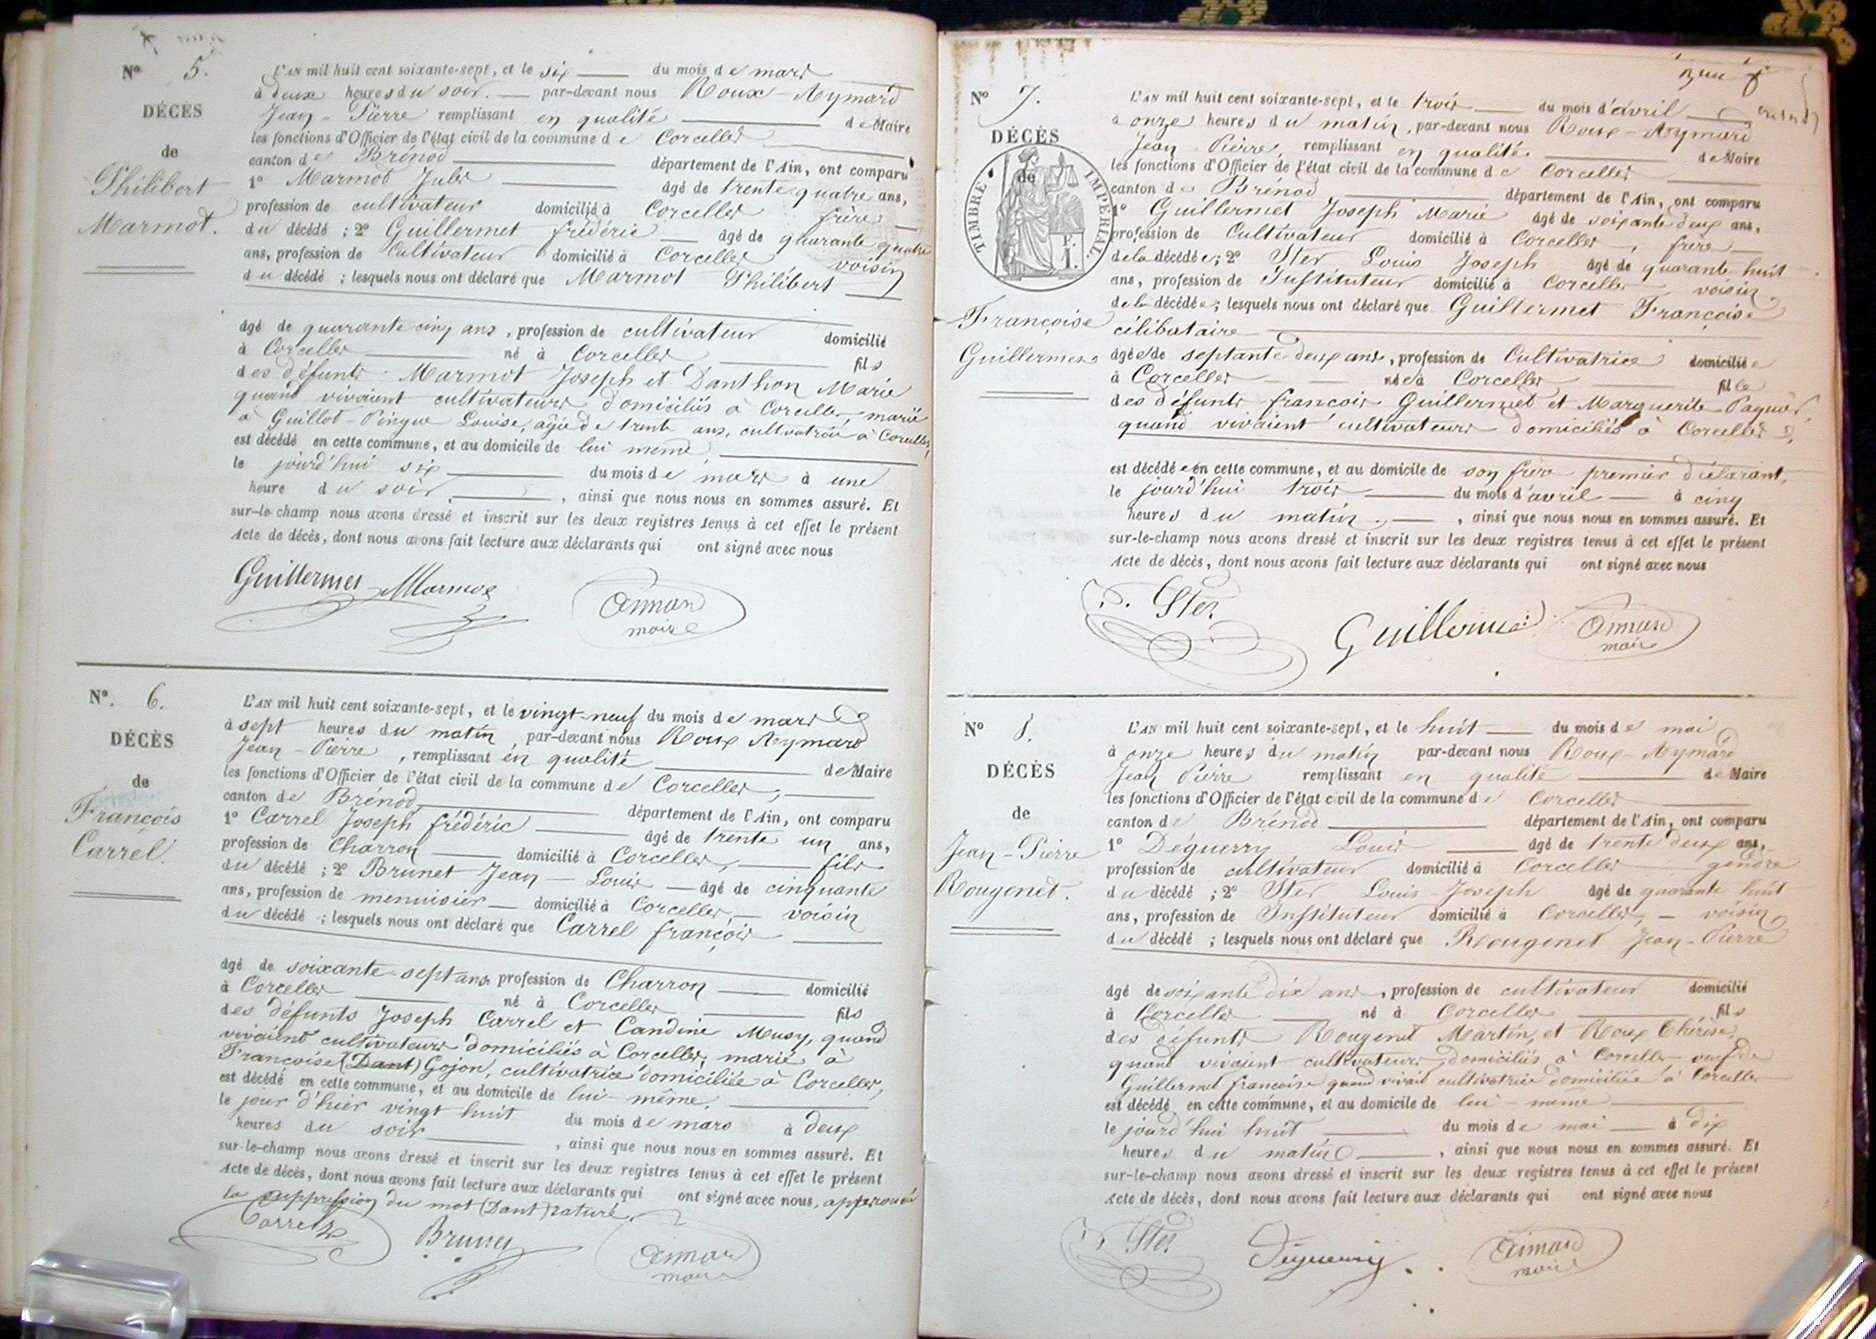 Nº 5.
DÉCÈS
de
Philibert
Marmot.
L'AN mil huit cent soixante-sept, et le six du mois de mars
à deux heures du soir. par-devant nous Roux-Aymard
Jean-Pierre remplissant en qualité de Maire
les fonctions d'Officier de l'état civil de la commune de Corcelles
canton de Brénod département de l'Ain, ont comparu
1º Marmot Jules âgé de trente quatre ans,
profession de cultivateur domicilié à Corcelles frère
du décédé ; 2º Guillermet frédéric âgé de quarante quatre
ans, profession de Cultivateur domicilié à Corcelles voisin
du décédé ; lesquels nous ont déclaré que Marmot Philibert
âgé de quarante cinq ans, profession de cultivateur domicilié
à Corcelles né à Corcelles fils
des défunts Marmot Joseph et Danthon Marie
quand vivaient cultivateurs domiciliés à Corcelles, marié
à Guillot-Pingue Louise, agée de trente ans, cultivatrice à Corcelles,
est décédé en cette commune, et au domicile de lui même
le jourd'hui six du mois de mars à une
heure du soir, , ainsi que nous nous en sommes assuré. Et
sur-le-champ nous avons dressé et inscrit sur les deux registres tenus à cet effet le présent
Acte de décès, dont nous avons fait lecture aux déclarants qui ont signé avec nous
Guillermet Marmot Aimard
maire
Nº. 6.
DÉCÈS
de
François
Carrel.
L'AN mil huit cent soixante-sept, et le vingt-neuf du mois de mars
à sept heures du matin, par-devant nous Roux Aymard
Jean-Pierre, remplissant en qualité de Maire
les fonctions d'Officier de l'état civil de la commune de Corcelles,
canton de Brénod, département de l'Ain, ont comparu
1º Carrel Joseph frédéric âgé de trente un ans,
profession de Charron domicilié à Corcelles, fils
du décédé ; 2º Brunet Jean-Louis âgé de cinquante
ans, profession de menuisier domicilié à Corcelles, voisin
du décédé ; lesquels nous ont déclaré que Carrel françois
âgé de soixante-sept ans profession de Charron domicilié
à Corcelles né à Corcelles fils
des défunts Joseph Carrel et Candine Musy, quand
vivaient cultivateurs domiciliés à Corcelles, marié à
Françoise (Dant) Gojon, cultivatrice domiciliée à Corcelles,
est décédé en cette commune, et au domicile de lui-même.
le jour d'hier vingt huit du mois de mars à deux
heures du soir , ainsi que nous nous en sommes assuré. Et
sur-le-champ nous avons dressé et inscrit sur les deux registres tenus à cet effet le présent
Acte de décès, dont nous avons fait lecture aux déclarants qui ont signé avec nous, approuvé
la suppression du mot (Dant) raturé.
Carrel Brunet Aimard
maire
Nº 7.
DÉCÈS
de
TIMBRE IMPÉRIAL
F. 1.
Françoise
Guillermet
L'AN mil huit cent soixante-sept, et le trois du mois d'avril
à onze heures du matin, par-devant nous Roux-Aymard
Jean Pierre, remplissant en qualité de Maire
les fonctions d'Officier de l'état civil de la commune de Corcelles
canton de Brénod département de l'Ain, ont comparu
1º Guillermet Joseph Marie âgé de soixante deux ans,
profession de Cultivateur domicilié à Corcelles, frère
de la décédée ; 2º Ster Louis Joseph âgé de quarante huit
ans, profession de Instituteur domicilié à Corcelles voisin
de la décédée ; lesquels nous ont déclaré que Guillermet Françoise
célibataire
âgée de septante-deux ans, profession de Cultivatrice domiciliée
à Corcelles née à Corcelles fille
des défunts francois Guillermet et Marguerite Paquet
quand vivaient cultivateurs domiciliés à Corcelles,
est décédée en cette commune, et au domicile de son frère premier déclarant,
le jourd'hui trois du mois d'avril à cinq
heures du matin , ainsi que nous nous en sommes assuré. Et
sur-le-champ nous avons dressé et inscrit sur les deux registres tenus à cet effet le présent
Acte de décès, dont nous avons fait lecture aux déclarants qui ont signé avec nous
Ster Guillermet Aimard
maire
Nº 8.
DÉCÈS
de
Jean-Pierre
Rougenet.
L'AN mil huit cent soixante-sept, et le huit du mois de mai
à onze heures du matin par-devant nous Roux-Aymard
Jean Pierre remplissant en qualité de Maire
les fonctions d'Officier de l'état civil de la commune de Corcelles
canton de Brénod département de l'Ain, ont comparu
1º Déguerry Louis âgé de trente deux ans,
profession de cultivateur domicilié à Corcelles gendre
du décédé ; 2º Ster Louis-Joseph âgé de quarante huit
ans, profession de Instituteur domicilié à Corcelles, voisin
du décédé ; lesquels nous ont déclaré que Rougenet Jean-Pierre
âgé de soixante dix ans, profession de cultivateur domicilié
à Corcelles né à Corcelles fils
des défunts Rougenet Martin, et Roux Thérèse,
quand vivaient cultivateurs domiciliés à Corcelles veuf de
Guillermet françoise quand vivait cultivatrice domiciliée à Corcelles
est décédé en cette commune, et au domicile de lui-même
le jourd'hui huit du mois de mai à dix
heures du matin , ainsi que nous nous en sommes assuré. Et
sur-le-champ nous avons dressé et inscrit sur les deux registres tenus à cet effet le présent
Acte de décès, dont nous avons fait lecture aux déclarants qui ont signé avec nous
Ster Déguerry Aimard
maire